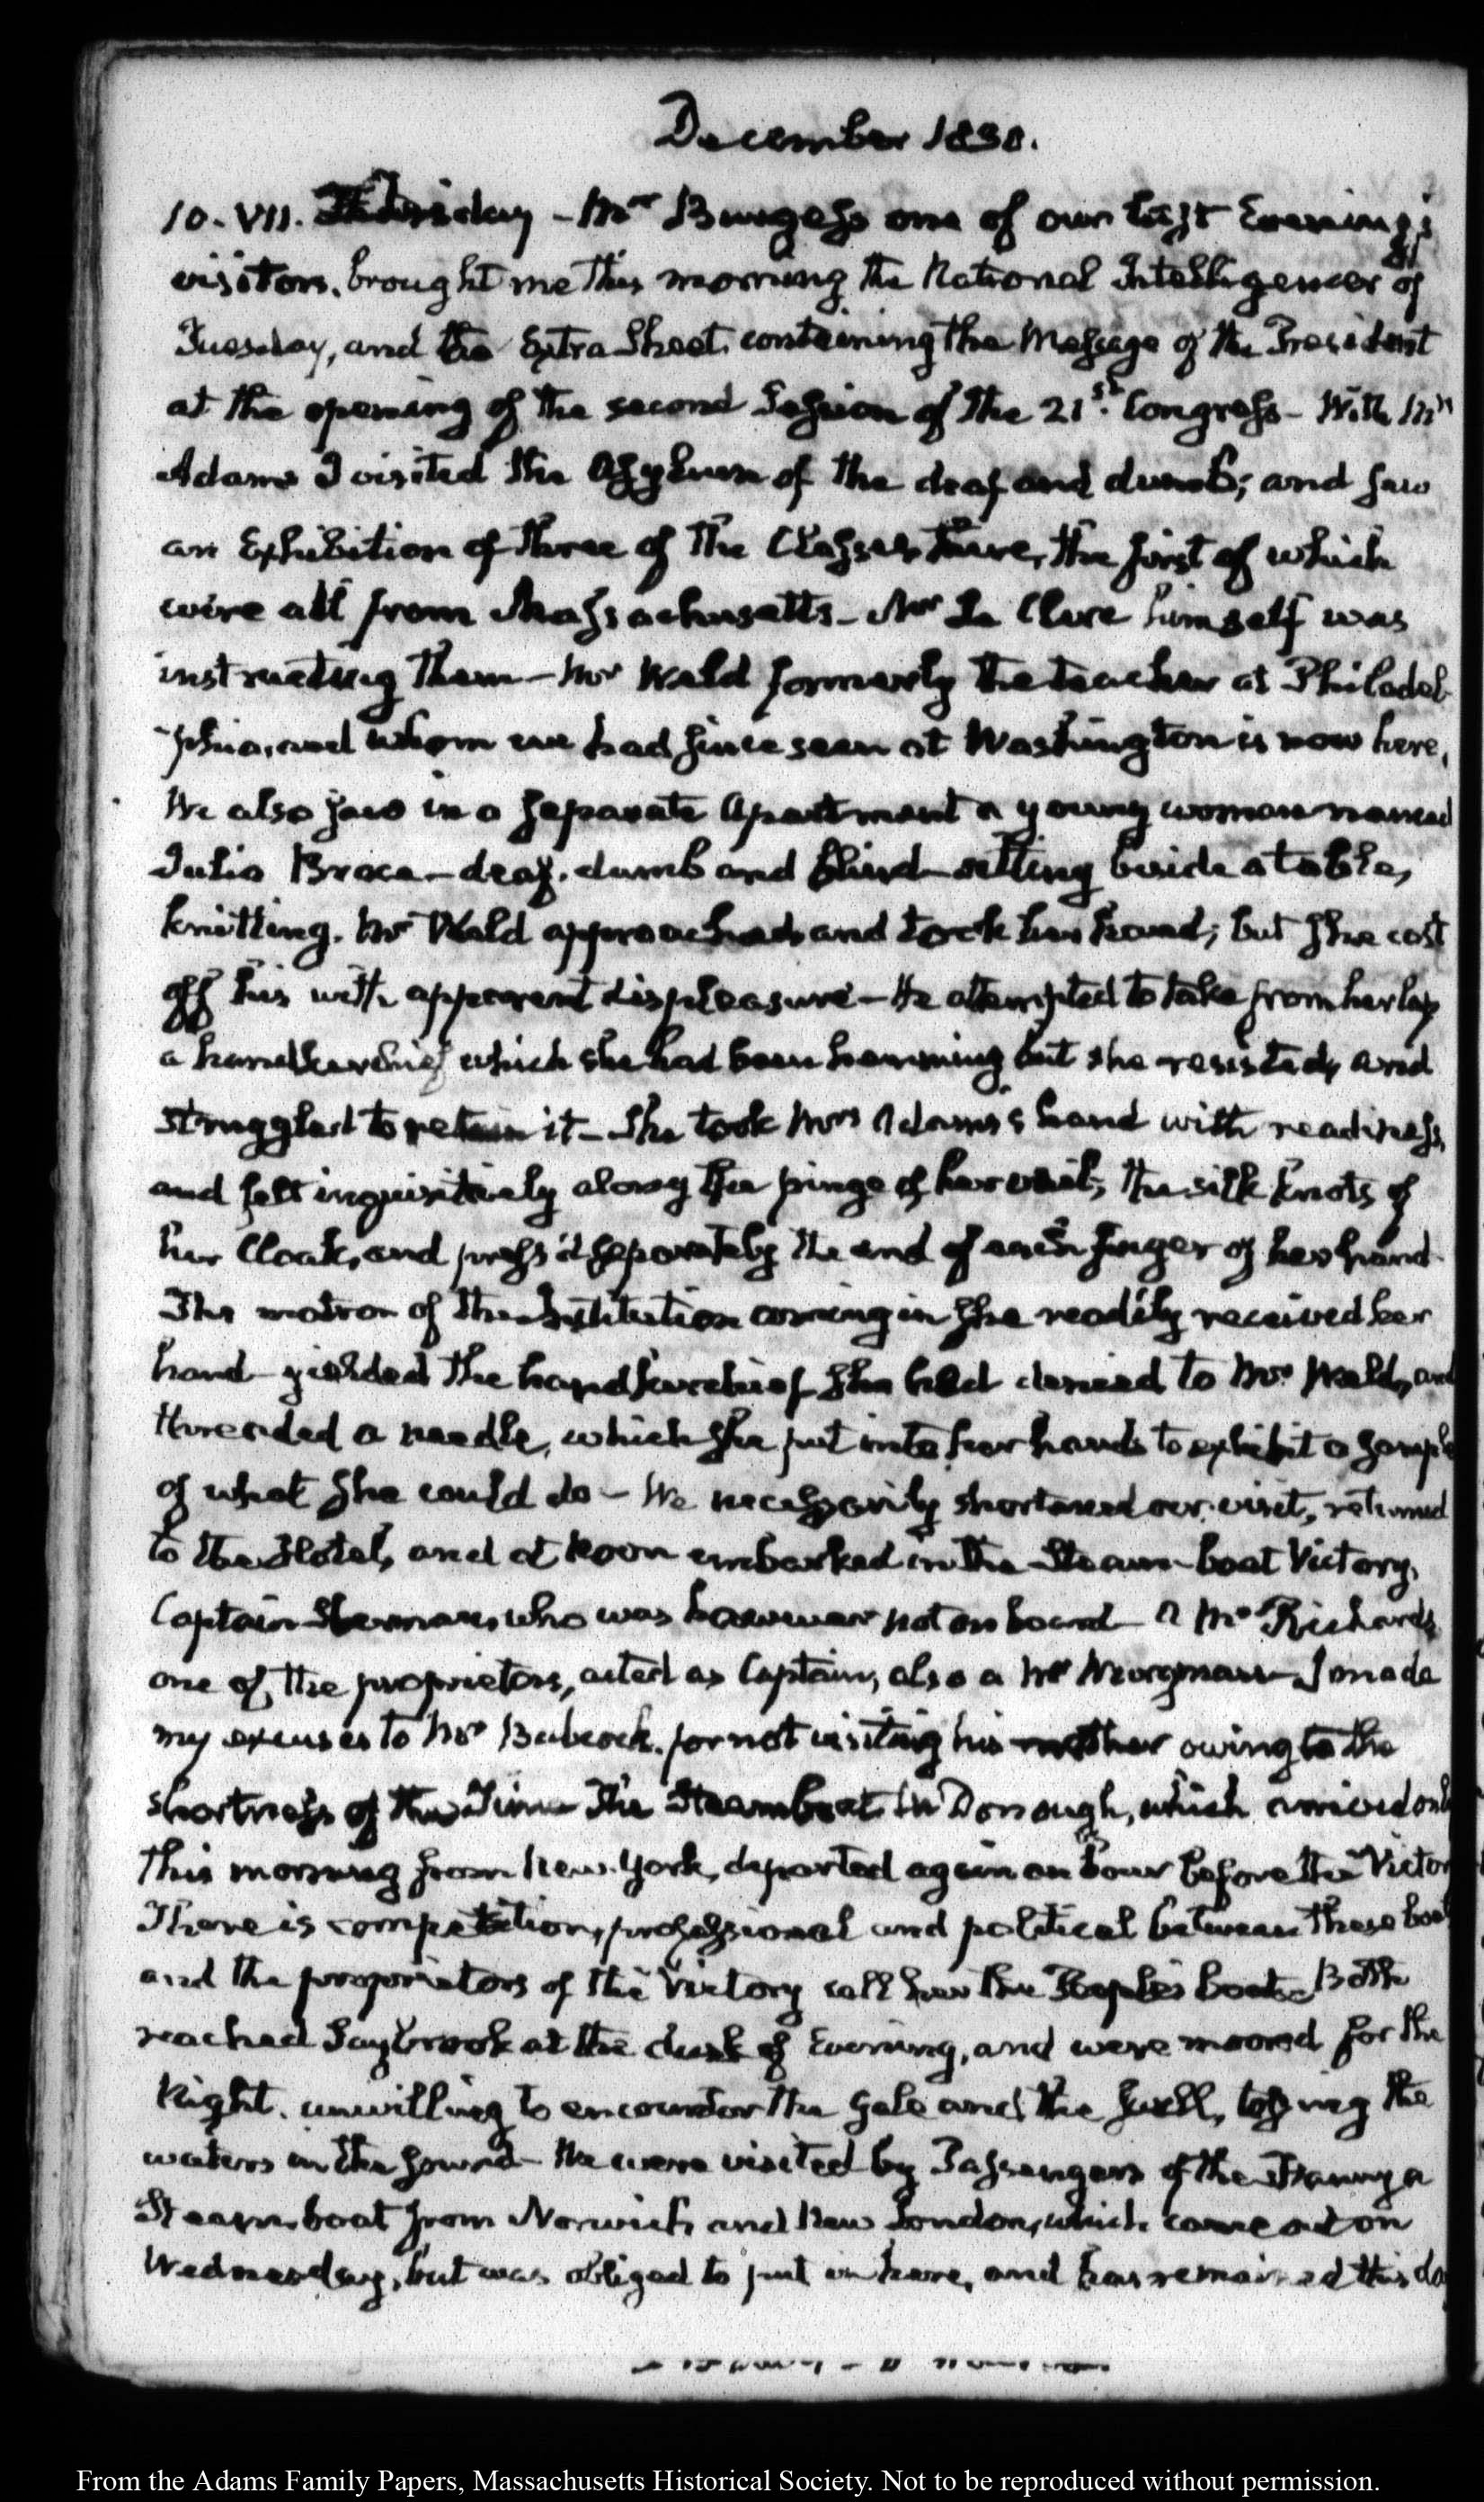 December 1830.
10. VII. Friday - Mr. Burgess one of our last Evening's
visitors, brought me this morning the National Intelligencer of
Tuesday, and the Extra Sheet containing the Message of the President
at the opening of the second Session of the 21st. Congress - With Mrs
Adams I visited the Asylum of the deaf and dumb; and saw
an Exhibition of three of the Classes there, the first of which
were all from Massachusetts - Mr Le Clerc himself was
instructing them - Mr Weld formerly the teacher at Philadel-
-phia, and whom we had since seen at Washington is now here,
We also saw in a separate Apartment a young woman named
Julia Brace - deaf, dumb and blind - sitting beside a table,
knitting. Mr Weld approached and took her hand; but she cast
off his with apparent displeasure - He attempted to take from her lap
a handkerchief which she had been hemming but she resisted, and
struggled to retain it - She took Mrs Adams's hand with readiness,
and felt inquisitively along the fringe of her veil, the silk knots of
her Cloak, and press'd separately the end of each finger of her hand
The matron of the Institution coming in she readily received her
hand - yielded the handkerchief she had denied to Mr. Weld, and
threaded a needle, which she put into her hands to exhibit a sample
of what she could do - We necessarily shortened our visit, returned
to the Hotel, and at Noon embarked in the Steam-boat Victory,
Captain who was however not on board - A Mr Richards,
one of the proprietors, acted as Captain, also a Mr I made
my excuses to Mr Babcock, for not visiting his mother owing to the
shortness of the Time The Steamboat McDonough, which arrived only
this morning from New-York, departed again an hour before the Victory
There is competition, professional and political between these boats
and the proprietors of the Victory call her the People's boat - Both
reached Saybrook at the dusk of Evening, and were moored for the
Night, unwilling to encounter the Gale and the swell, tossing the
waters in the Sound - We were visited by Passengers of the Fanny a
Steam-boat from Norwich and New London, which came out on
Wednesday, but was obliged to put in here, and has remained this day
From the Adams Family Papers, Massachusetts Historical Society. Not to be reproduced without permission.